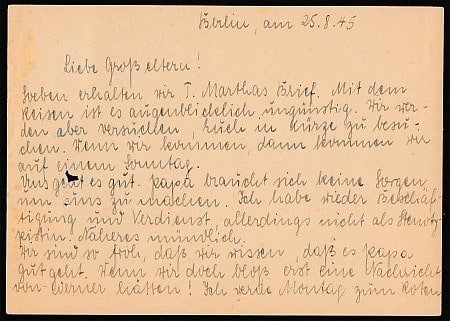 Berlin, am 25.8.45
Liebe Großeltern!
Soeben erhalten wir T. Marthas Brief. Mit dem
Reisen ist es augenblicklich ungünstig. Wir wer-
den aber versuchen, Euch in Kürze zu besu-
chen. Wenn wir kommen, dann kommen wir
auf einem Sonntag.
Uns geht es gut. Papa braucht sich keine Sorgen
um uns zu machen. Ich habe wieder Beschäf-
tigung und Verdienst, allerdings nicht als Stenoty-
pistin. Näheres mündlich.
Wir sind so froh, daß wir wissen, daß es Papa
gut geht. Wenn wir doch bloß erst eine Nachricht
von Werner hätten! Ich werde Montag zum Roten